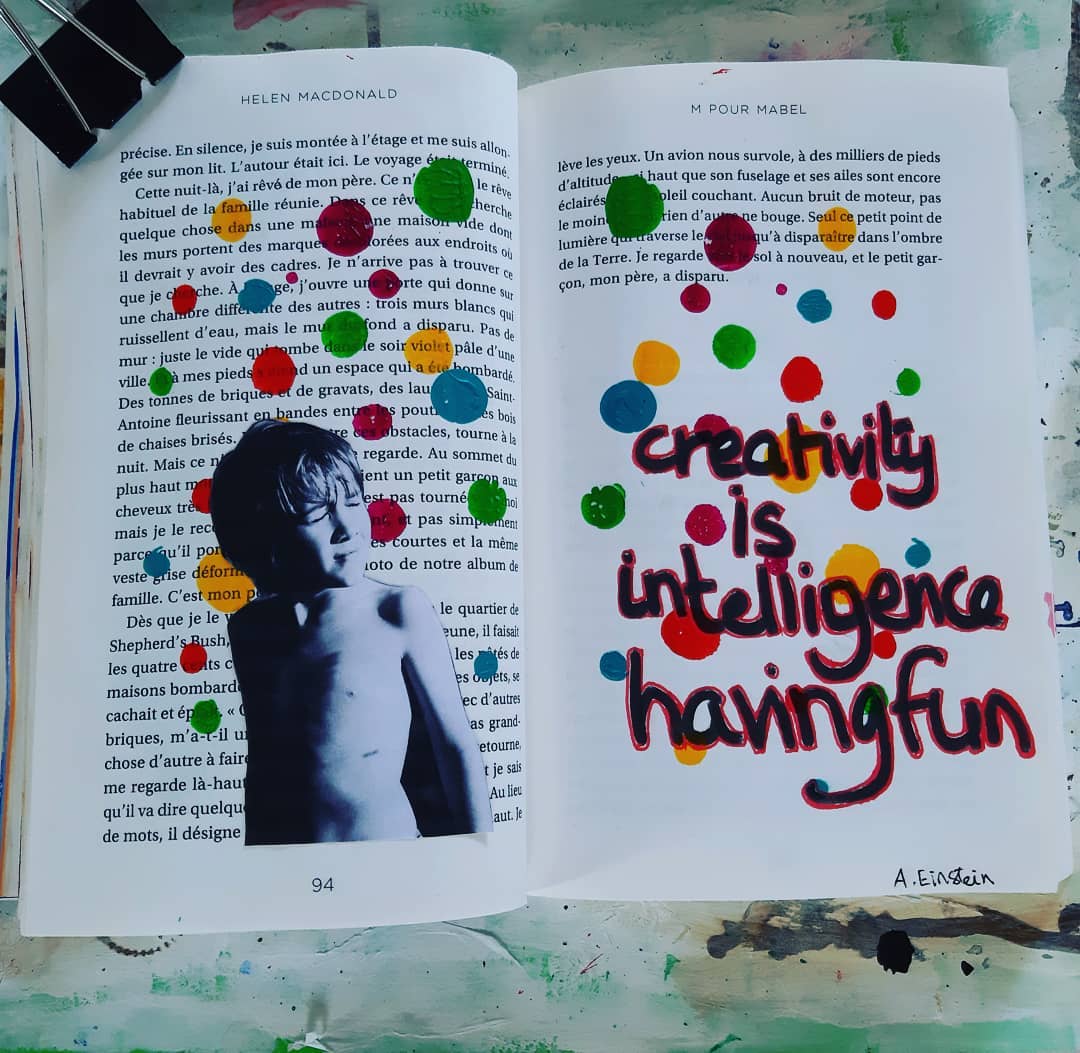 HELEN MACDONALD
précise. En silence, je suis montée à l'étage et me suis allon-
gée sur mon lit. L'autour était ici. Le voyage était terminé.
Cette nuit-là, j'ai rêvé de mon père. Ce le rêve
habituel de la famille réunie. Dans ce rêve cherche
quelque chose dans une maison une maison vide dont
les murs portent des marques aux endroits où
il devrait y avoir des cadres. Je n'arrive pas à trouver ce
que je cherche. À j'ouvre une porte qui donne sur
une chambre différente des autres : trois murs blancs qui
ruissellent d'eau, mais le mur du fond a disparu. Pas de
mur : juste le vide qui tombe dans le soir violet pâle d'une
ville. Et à mes pieds s'étend un espace qui a été bombardé.
Des tonnes de briques et de gravats, des Saint-
Antoine fleurissant en bandes entre les bois
de chaises brisés. ces obstacles, tourne à la
nuit. Mais ce regarde. Au sommet du
plus haut un petit garçon aux
cheveux pas tournée
mais je le et pas simplement
parce qu'il courtes et la même
veste grise photo de notre album de
famille. C'est mon
Dès que je le le quartier de
Shepherd's Bush, il faisait
les quatre cents les pâtés de
maisons objets, se
cachait et « d'autres
briques, m'a-t-il grand-
chose d'autre à faire
me regarde là-haut je sais
qu'il va dire Au lieu
de mots, il désigne Je
94
M POUR MABEL
lève les yeux. Un avion nous survole, à des milliers de pieds
d'altitude, si haut que son fuselage et ses ailes sont encore
éclairés soleil couchant. Aucun bruit de moteur, pas
le moindre rien d'autre ne bouge. Seul ce petit point de
lumière qui traverse le jusqu'à disparaître dans l'ombre
de la Terre. Je regarde le sol à nouveau, et le petit gar-
çon, mon père, a disparu.
creativity
is
intelligence
having fun
A. Einstein